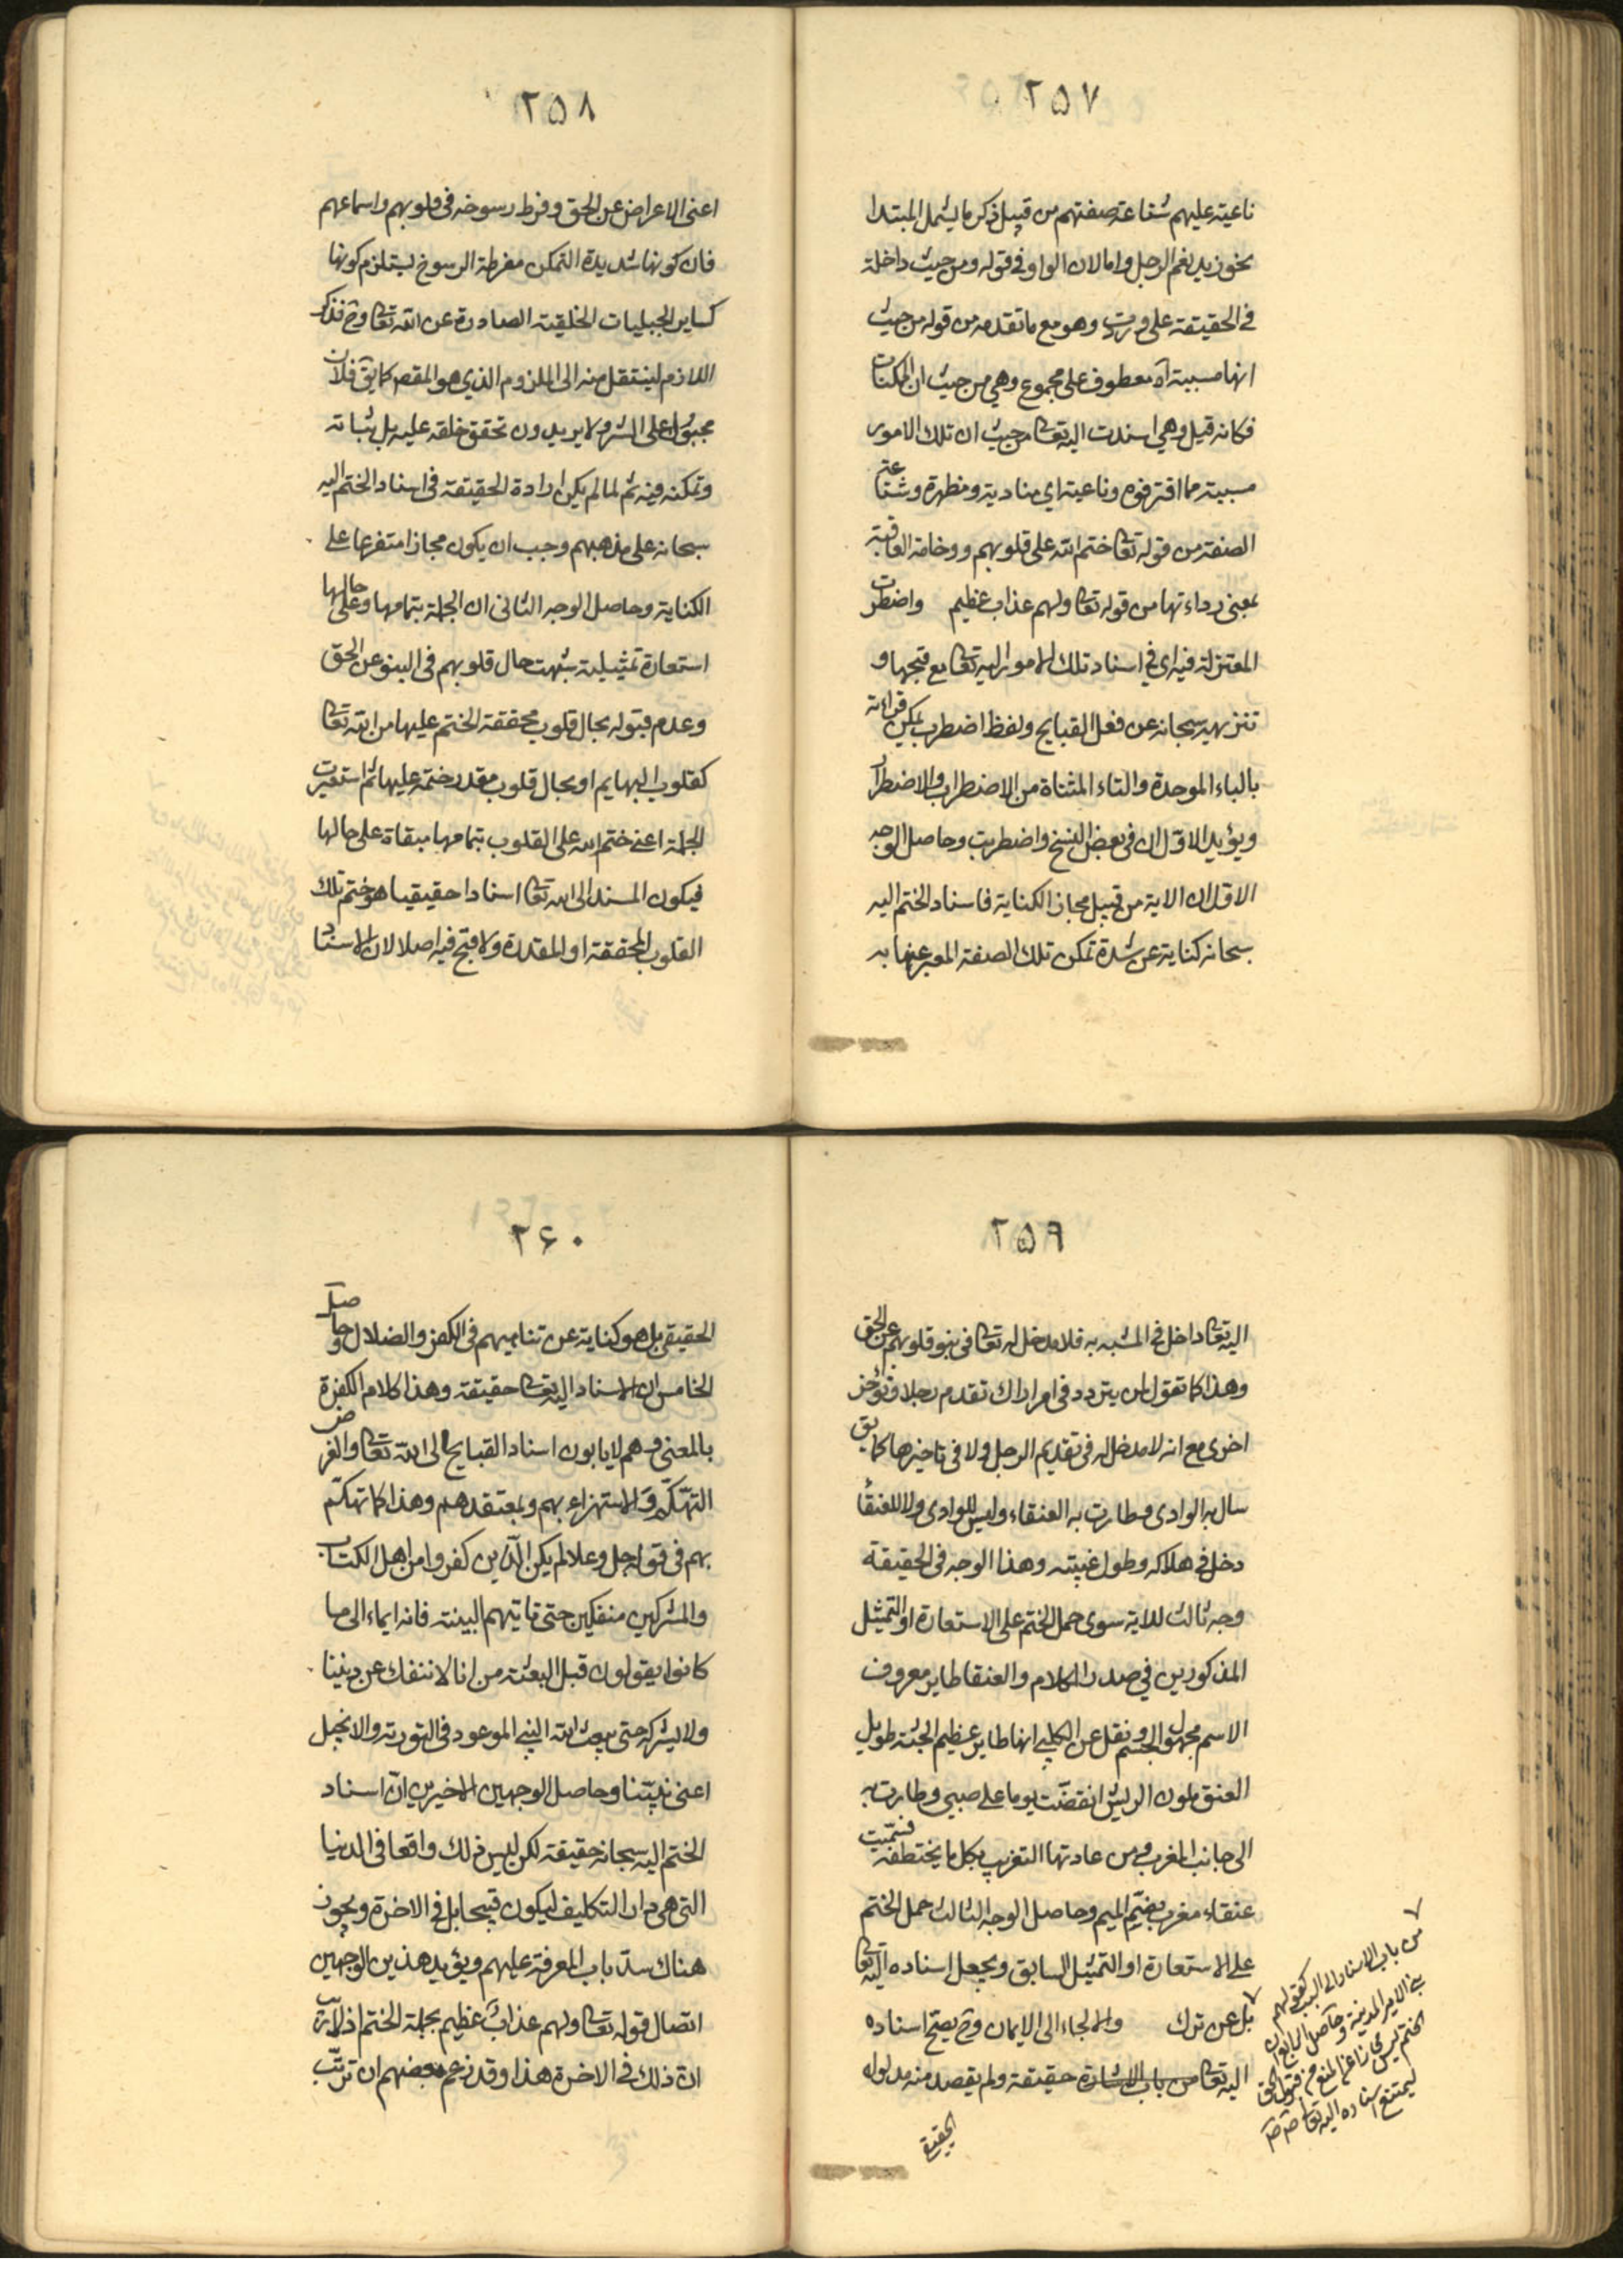 ٢٥٧
ناعيته عليهم شناعة صفتهم من قبيل ذكر ما يشمل المبتدا
نحو زيد نعم الرجل واما لان الواو في قوله ومن حيث داخلة
في الحقيقة على وردت وهو مع ما تقدمه من قوله من حيث
انها مسببة آه معطوف على مجموع وهي من حيث ان الممكنات
فكانه قيل وهي اسندت اليه تعالى من حيث ان تلك الامور
مسببة مما اقترفوه وناعية اي منادية ومظهرة وشناعة
الصفة من قوله تعا ختم الله على قلوبهم ووخامة العاقبة
بمعنى رداءتها من قوله تعا ولهم عذاب عظيم واضطربت
المعتزلة فيه اي في اسناد تلك الامور اليه تعا مع قبحها و
تنزيهه سبحانه عن فعل القبايح ولفظ اضطرب يمكن قرائته
بالباء الموحدة والتاء المثناة من الاضطراب والاضطرار
ويؤيد الاول ان في بعض النسخ واضطربت وحاصل الوجه
الاول ان الاية من قبيل مجاز الكناية فاسناد الختم اليه
سبحانه كناية عن شدة تمكن تلك الصفة المعبر عنها به
٢٥٨
اعنى الاعراض عن الحق وفرط رسوخه فى قلوبهم واسماعهم
فان كونها شديدة التمكن مفرطة الرسوخ يستلزم كونها
كساير الجبليات الخلقية الصادرة عن الله تعا وح فذكر
اللازم لينتقل منه الى الملزوم الذي هو المقص كما يق فلان
مجبول على الشر ولا يريدون تحقق خلقه عليه بل ثباته
وتمكنه فيه ثم لما لم يكن ارادة الحقيقة فى اسناد الختم اليه
سبحانه على مذهبهم وجب ان يكون مجازا متفرعا على
الكناية وحاصل الوجه الثانى ان الجملة بتمامها وعلى حالها
استعارة تمثيلية شبهت حال قلوبهم فى النبو عن الحق
وعدم قبوله بحال قلوب محققة الختم عليها من الله تعا
كقلوب البهايم او بحال قلوب مقدر ختمه عليها ثم استعيرت
الجملة اعنى ختم الله على القلوب بتمامها مبقاة على حالها
فيكون المسند الى الله تعا اسنادا حقيقيا هو ختم تلك
القلوب المحققة او المقدرة ولا قبح فيه اصلا لان الاسناد
٢٥٩
اليه تعا داخل في المشبه به فلا مدخل له تعا فى نبو قلوبهم عن الحق
وهذا كما تقول لمن يتردد فى امر اراك تقدم رجلا وتؤخر
اخرى مع انه لا مدخل له فى تقديم الرجل ولا فى تاخيرها كما يق
سال به الوادى وطارت به العنقاء وليس للوادى ولا للعنقاء
دخل في هلاكه وطول غيبته وهذا الوجه فى الحقيقة
وجه ثالث للاية سوى حمل الختم على الاستعارة او التمثيل
المذكورين في صدر الكلام والعنقا طاير معروف
الاسم مجهول الجسم ونقل عن الكلبي انها طاير عظيم الجثة طويل
العنق ملون الريش انقضت يوما على صبي وطارت به
الى جانب المغرب ومن عادتها التغريب بكل ما يختطفه فسميت
عنقاء مغرب بضم الميم وحاصل الوجه الثالث حمل الختم
على الاستعارة او التمثيل السابق ويجعل اسناده اليه تعا
بل عن ترك والالجاء الى الايمان وح يصح اسناده
اليه تعا من باب الاشارة حقيقة ولم يقصد منه مدلوله
الحقيقى
من باب الاسناد الى السبب كقولهم
بنى الامير المدينة وحاصل الرابع ان
الختم ليس مجازا عن المنع من قبول الحق
ليمتنع اسناده اليه تعا صح صح
٢٦٠
الحقيقى بل هو كناية عن تناهيهم فى الكفر والضلال وحاصل
الخامس ان الاسناد اليه تعا حقيقة وهذا كلام الكفرة
بالمعنى وهم لا يابون اسناد القبايح الى الله تعا والغرض
التهكم والاستهزاء بهم وبمعتقدهم وهذا كما تهكم
بهم فى قوله جل وعلا لم يكن الذين كفروا من اهل الكتاب
والمشركين منفكين حتى تاتيهم البينة فانه ايماء الى ما
كانوا يقولون قبل البعثة من انا لا ننفك عن ديننا
ولا نتركه حتى يبعث الله النبي الموعود فى التورية والانجيل
اعنى نبيّنا وحاصل الوجهين الاخيرين انّ اسناد
الختم اليه سبحانه حقيقة لكن ليس ذلك واقعا فى الدنيا
التى هى دار التكليف ليكون قبيحا بل في الاخرة ويجوز
هناك سدّ باب المعرفة عليهم ويؤيد هذين الوجهين
اتصال قوله تعا ولهم عذاب عظيم بجملة الختم اذ لا ريب
ان ذلك في الاخرة هذا وقد زعم بعضهم ان ترتّب